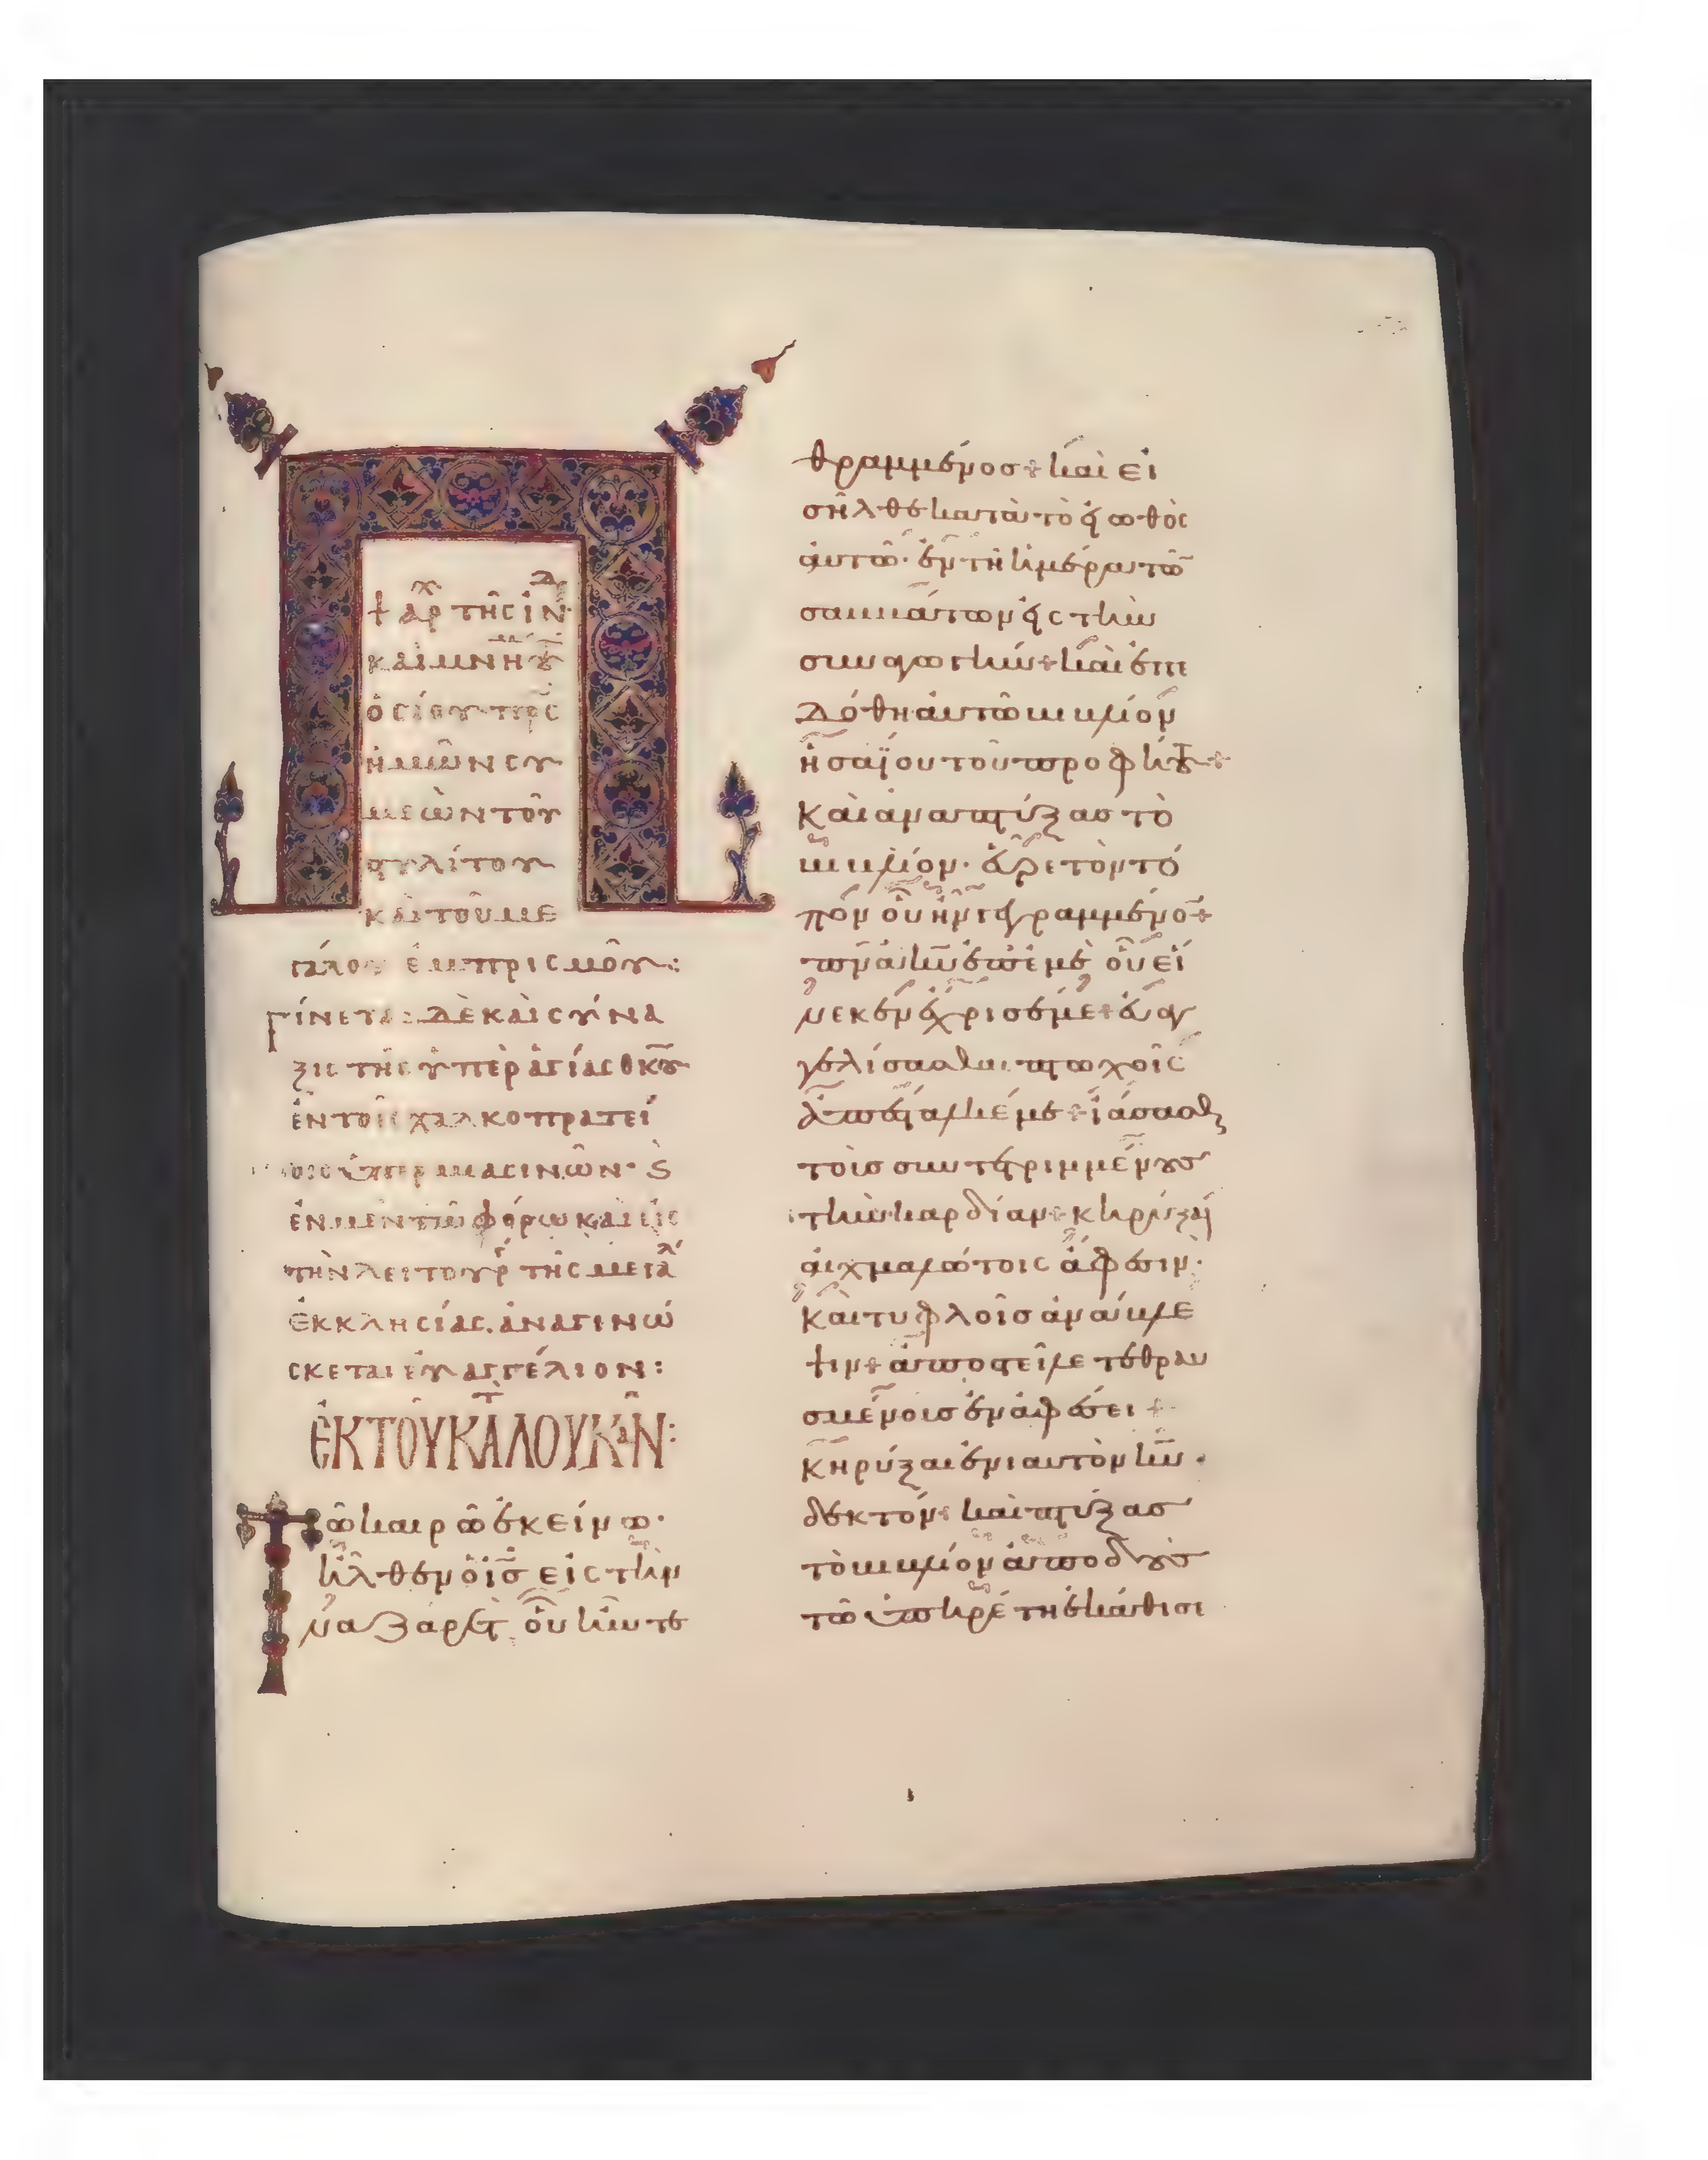 + ἀρχ τῆς ἰνδ
καὶ μνήμη τοῦ
ὁσίου πρς
ἡμῶν συ
μεὼν τοῦ
στυλίτου
καὶ τοῦ με
γάλου ἐμπρισμοῦ:
Γίνεται δὲ καὶ σύνα
ξις τῆς ὑπεραγίας θκου
ἐν τοῖς χαλκοπρατεί
οις ὑπὲρ μασινῶν· ϗ
ἐν μὲν τῶ φόρω καὶ εἰς
τὴν λειτουργ τῆς μεγάλ
ἐκκλησίας. ἀναγινώ
σκεται εὐαγγέλιον:
ἐΚ ΤΟῦ ΚΑΤΑ ΛΟΥΚᾶΝ:
Τῶ καιρῶ ἐκείνω·
ἦλθεν ὁ ις εἰς τὴν
ναζαρέτ, οὗ ἦν τε
θραμμένος + καὶ εἰ
σῆλθε κατὰ τὸ εἰωθὸς
αὐτῶ· ἐν τῆ ἡμέρα τῶν
σαββάτων εἰς τὴν
συναγωγήν + καὶ ἐπε
δόθη αὐτῶ βιβλίον
ἠσαΐου τοῦ προφήτου +
καὶ ἀναπτύξας τὸ
βιβλίον· εὗρε τὸν τό
πον οὗ ἦν γεγραμμένον +
πνα κυ ἐπ' ἐμέ· οὗ εἵ
νεκεν ἔχρισέν με + εὐαγ
γελίσασθαι πτωχοῖς
ἀπέσταλκέ με + ἰάσασθαι
τοῖς συντετριμμένους
τὴν καρδίαν + κηρύξαι
αἰχμαλώτοις ἄφεσιν·
καὶ τυφλοῖς ἀνάβλε
ψιν + ἀποστεῖλε τεθραυ
σμένοις ἐν ἀφέσει +
κηρύξαι ἐνιαυτὸν κυ·
δεκτόν + καὶ πτύξας
τὸ βιβλίον ἀποδοὺς
τῶ ὑπηρέτη ἐκάθισε